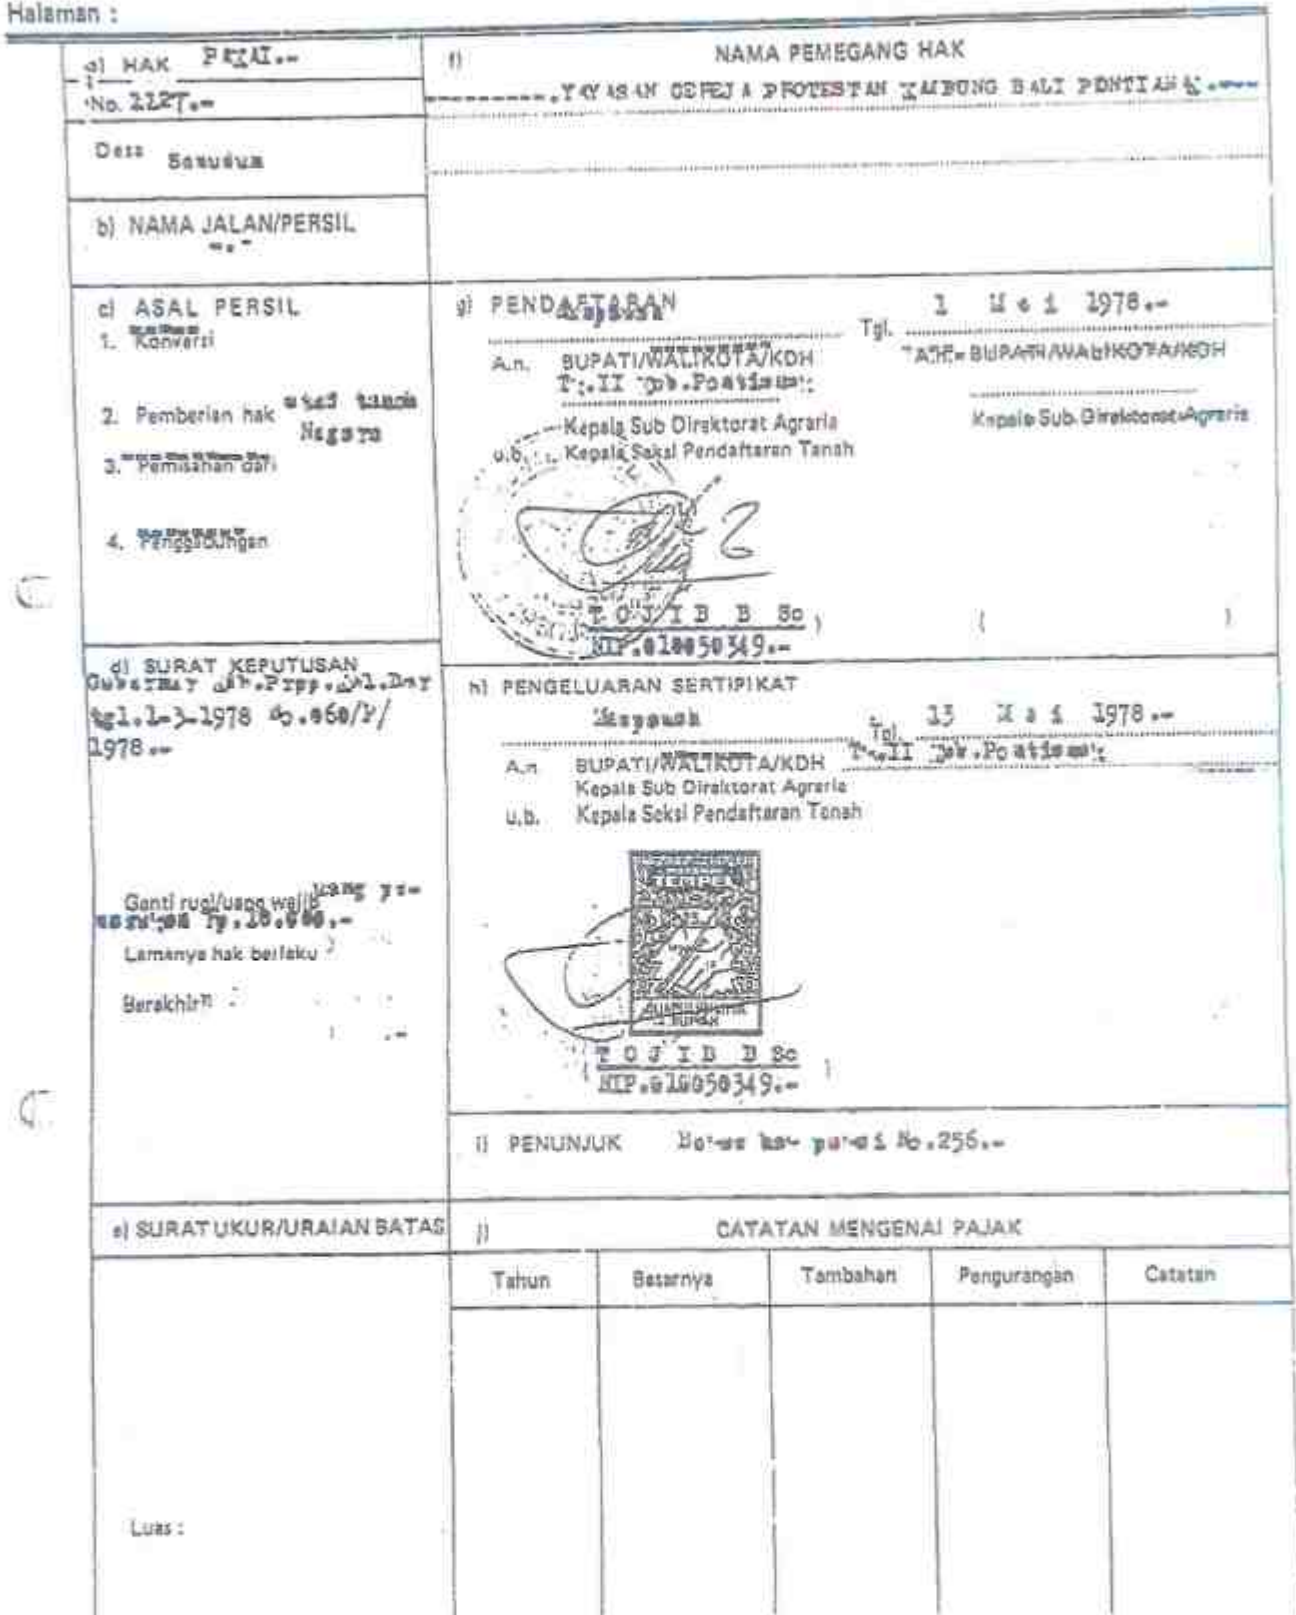 Halaman :
a) HAK PAKAI.-
No. 1127.-
Desa
b) NAMA JALAN/PERSIL
-.-
c) ASAL PERSIL
1. Konversi
2. Pemberian hak atas tanah
Negara
3. Pemisahan dari
4. Penggabungan
d) SURAT KEPUTUSAN
Gubernur
tgl.1-3-1978 No.060/P/
1978.-
Ganti rugi/uang wajib uang
Rp.18.000.-
Lamanya hak berlaku
Berakhir
.-
e) SURAT UKUR/URAIAN BATAS
Luas :
f) NAMA PEMEGANG HAK
YAYASAN GEREJA PROTESTAN BALI PONTIANAK.
g) PENDAFTARAN
Tgl. 1 Mei 1978.-
A.n. BUPATI/WALIKOTA/KDH
BUPATI/WALIKOTA/KDH
Kepala Sub Direktorat Agraria
Kepala Sub Direktorat Agraria
u.b. Kepala Seksi Pendaftaran Tanah
TOJIB B Sc )
( )
NIP.010050349.-
h) PENGELUARAN SERTIPIKAT
Tgl. 13 Mei 1978.-
A.n BUPATI/WALIKOTA/KDH
Kepala Sub Direktorat Agraria
u.b. Kepala Seksi Pendaftaran Tanah
TEMPEL
( TOJIB B Sc )
NIP.010050349.-
i) PENUNJUK No.256.-
j) CATATAN MENGENAI PAJAK
Tahun Besarnya Tambahan Pengurangan Catatan